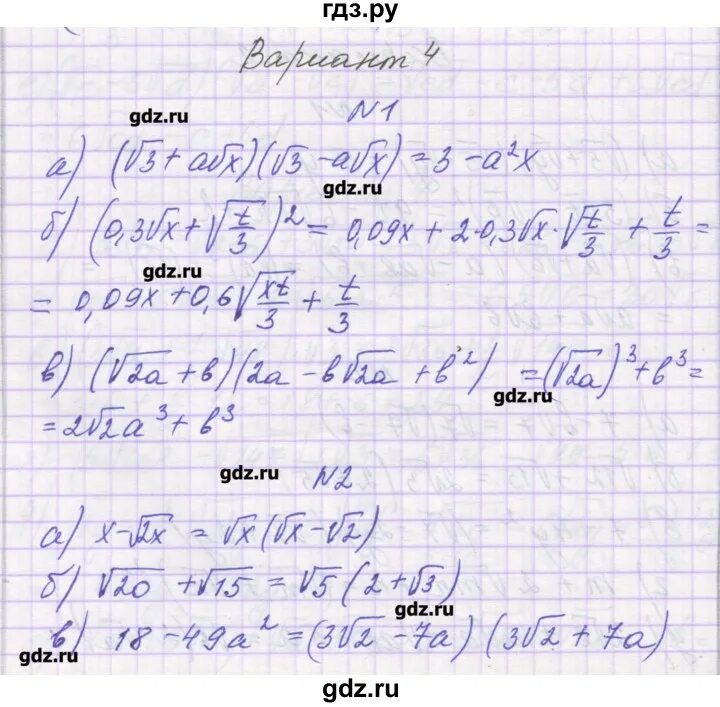 гдз.ру
Вариант 4
gdz.ru
N1
а) (√3 + a√x)(√3 - a√x) = 3 - a²x
gdz.ru
б) (0,3√x + √(t/3))² = 0,09x + 2·0,3√x·√(t/3) + t/3 =
gdz.ru
= 0,09x + 0,6√(xt/3) + t/3
в) (√2a + в)(2a - в√2a + в²) = (√2a)³ + в³ =
gdz.ru
= 2√2a³ + в³
gdz.ru
N2
а) x - √2x = √x(√x - √2)
б) √20 + √15 = √5(2 + √3)
gdz.ru
в) 18 - 49a² = (3√2 - 7a)(3√2 + 7a)
gdz.ru
gdz.ru